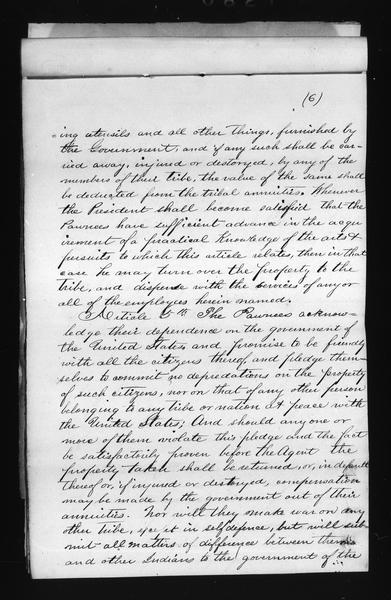 (6)
ing utensils and all other things, furnished by
the Government, and if any such shall be car-
ried away, injured or destoryed, by any of the
members of their tribe, the value of the same shall
be deducted from the tribal annuities. Whenever
the President shall become satisfied that the
Pawnees have sufficient advance in the acqu
irement of a practical Knowledge of the arts &
pursuits to which this article relates, then in that
case he may turn over the property to the
tribe, and dispense with the services of any or
all of the employees herein named.
Article 5th The Pawnees acknow-
ledge their dependence on the government of
the United States, and promise to be friendly
with all the citizens thereof, and pledge them-
selves to commit no depredations on the property
of such citizens, nor on that of any other person
belonging to any tribe or nation at peace with
the United States, And should any one or
more of them violate this pledge and the fact
be satisfactorily proven before the Agent the
property taken shall be returned, or, in default
thereof or, if injured or destoyed, compensation
may be made by the government out of their
annuities. Nor will they make war on any
other tribe, except in self defence, but will sub
mit all matters of difference between them
and other Indians to the government of the